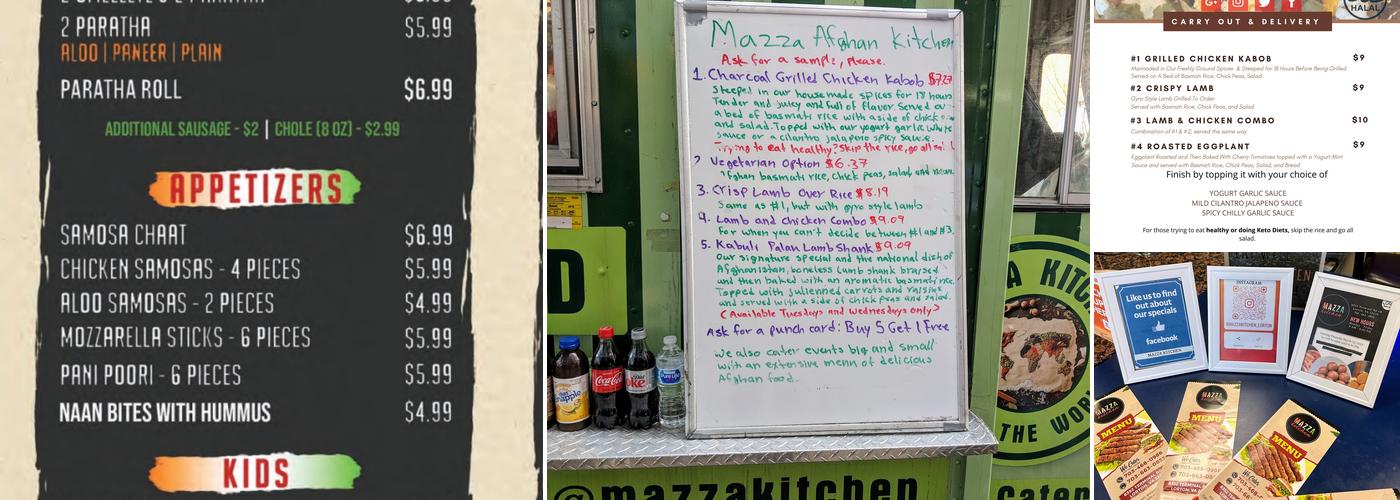 2 PARATHA $5.99
ALOO | PANEER | PLAIN
PARATHA ROLL $6.99
ADDITIONAL SAUSAGE - $2 | CHOLE (8 OZ) - $2.99
APPETIZERS
SAMOSA CHAAT $6.99
CHICKEN SAMOSAS - 4 PIECES $5.99
ALOO SAMOSAS - 2 PIECES $4.99
MOZZARELLA STICKS - 6 PIECES $5.99
PANI POORI - 6 PIECES $5.99
NAAN BITES WITH HUMMUS $4.99
KIDS
Mazza Afghan Kitchen
Ask for a sample, please.
1. Charcoal Grilled Chicken Kabob $7.27
Steeped in our house made spices for 18 hours
Tender and juicy and full of flavor. Served on
a bed of basmati rice with a side of chick
and salad. Topped with our yogurt garlic white
sauce or a cilantro jalapeno spicy sauce.
Trying to eat healthy? Skip the rice, go all
Vegetarian Option $6.37
Afghan basmati rice, chick peas, salad and
3. Crisp Lamb Over Rice $8.19
Same as #1, but with gyro style lamb
4. Lamb and Chicken Combo $9.09
For when you can't decide between #1 and #3.
5. Kabuli Palau Lamb Shank $9.09
Our signature special and the national dish of
Afghanistan, boneless lamb shank braised
and then baked with an aromatic basmati rice.
Topped with julienned carrots and raisins
and served with a side of chick peas and salad.
(Available Tuesdays and Wednesdays only)
Ask for a punch card: Buy 5 Get 1 Free
We also cater events big and small
with an extensive menu of delicious
Afghan food.
D
A KITC
THE WOR
Coca-Cola
oke
@mazzakitchen
Cater
HALAL
CARRY OUT & DELIVERY
#1 GRILLED CHICKEN KABOB $9
Marinaded in Our Freshly Ground Spices & Steeped for 18 Hours Before Being Grilled.
Served on A Bed of Basmati Rice, Chick Peas, Salad
#2 CRISPY LAMB $9
Gyro Style Lamb Grilled To Order
Served with Basmati Rice, Chick Peas, and Salad
#3 LAMB & CHICKEN COMBO $10
Combination of #1 & #2, served the same way
#4 ROASTED EGGPLANT $9
Eggplant Roasted and Then Baked With Cherry Tomatoes topped with a Yogurt Mint
Sauce and served with Basmati Rice, Chick Peas, Salad, and Bread
Finish by topping it with your choice of
YOGURT GARLIC SAUCE
MILD CILANTRO JALAPENO SAUCE
SPICY CHILLY GARLIC SAUCE
For those trying to eat healthy or doing Keto Diets, skip the rice and go all
salad.
Like us to find
out about
our specials
facebook
MAZZA KITCHEN
INSTAGRAM
MAZZAKITCHEN_LORTON
MAZZA
NEW HOURS
MAZZA
MENU
We Cater
703-468-0986
MAZZA
MENU
We Cater
MAZZA
MENU
We Cater
703-468-098
703-663-08
LORTON, VA